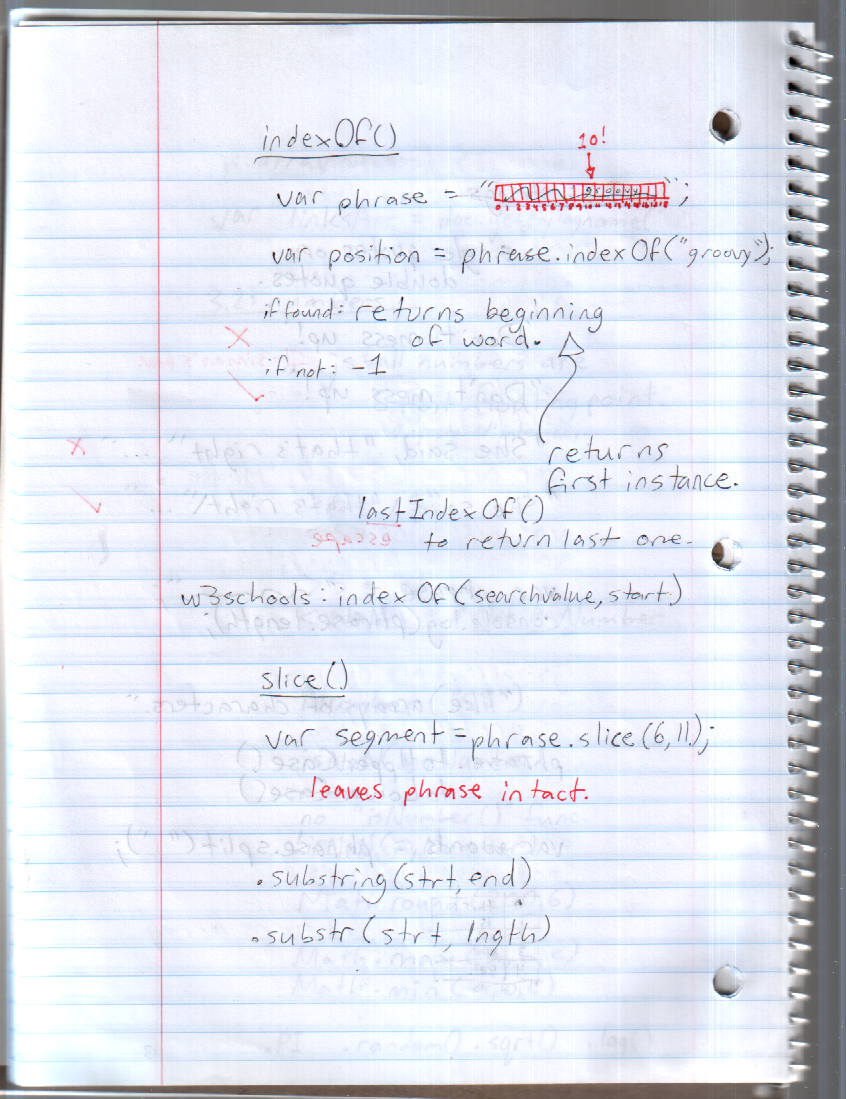 indexOf()
10!
var phrase = "groovy";
0 1 2 3 4 5 6 7 8 9 10 11 12 13 14 15 16 17 18
var position = phrase.indexOf("groovy");
if found: returns beginning
of word.
if not: -1
returns
first instance.
lastIndexOf()
to return last one.
w3schools: indexOf(searchvalue, start)
slice()
var segment = phrase.slice(6,11);
leaves phrase intact.
.substring(strt, end)
.substr(strt, lngth)